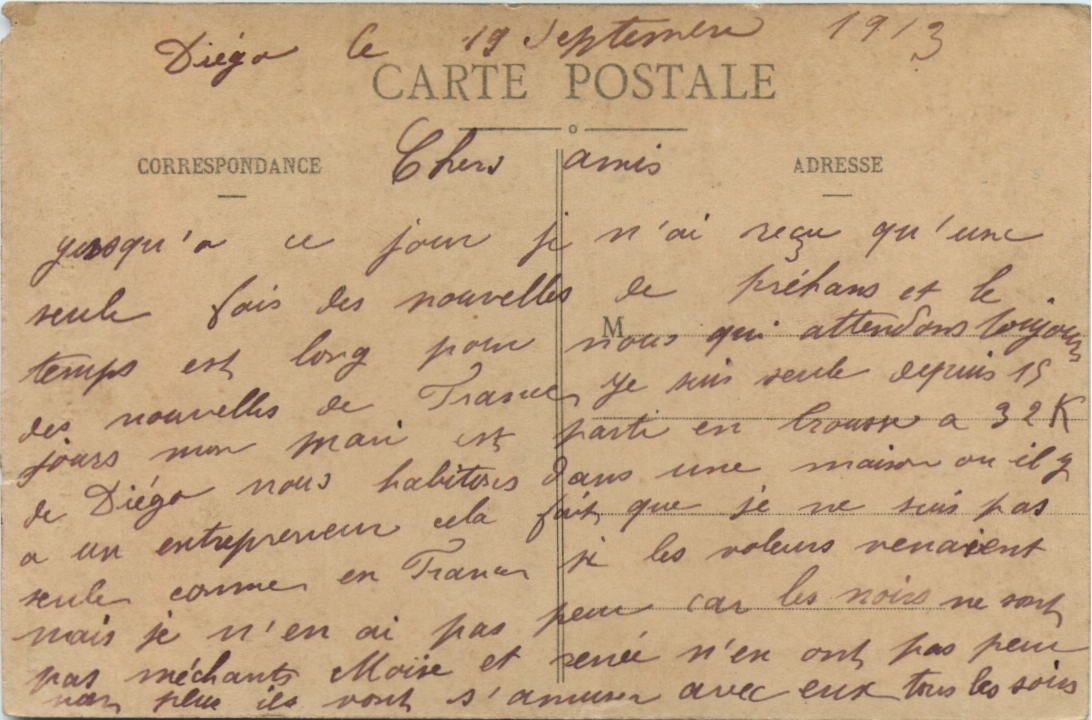 Diégo le 19 Septembre 1913
CARTE POSTALE
CORRESPONDANCE
Chers amis
ADRESSE
jusqu'a ce jour je n'ai reçu qu'une
seule fois des nouvelles de préhans et le
M
temps est long pour nous qui attendons toujours
des nouvelles de France, je suis seule depuis 15
jours mon mari est parti en brousse a 32 K
de Diégo nous habitons dans une maison ou il y
a un entrepreneur cela fait que je ne suis pas
seule comme en France si les voleurs venaient
mais je n'en ai pas peur car les noirs ne sont
pas méchants Moïse et renée n'en ont pas peur
non plus ils vont s'amuser avec eux tous les soirs